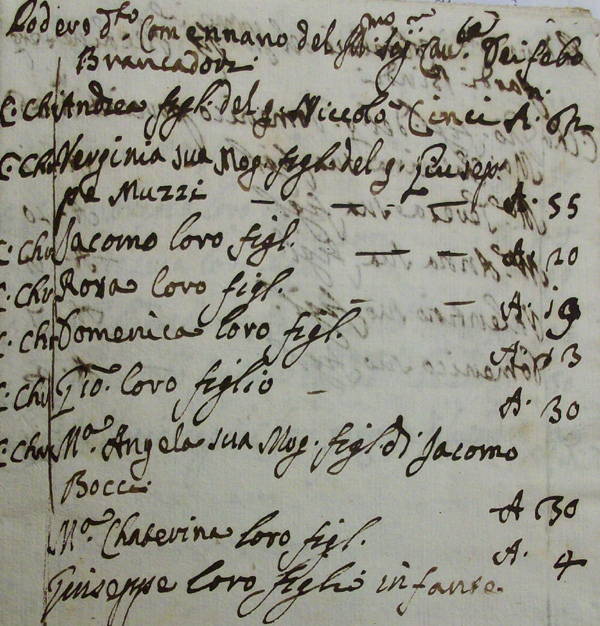 Podero d.to Comennano del Ill.mo Sig.r Cau.re Deifebo
Brancadori
C: Ch: Andrea figl. del q. Niccolò Cinci A. 62
C: Ch: Verginia sua Mog. figl. del q. Giusep
pe Muzzi — — — A. 55
C: Ch: Jacomo loro figl. — — A. 20
C: Ch: Rosa loro figl. — — A. 19
C: Ch: Domenica loro figl. A. 13
C: Ch: Gio. loro figlio — A. 30
C: Ch: M.a Angela sua Mog. figl. di Jacomo
Bocci A 30
M.a Chaterina loro figl. A. 4
Giuseppe loro figlio infante.